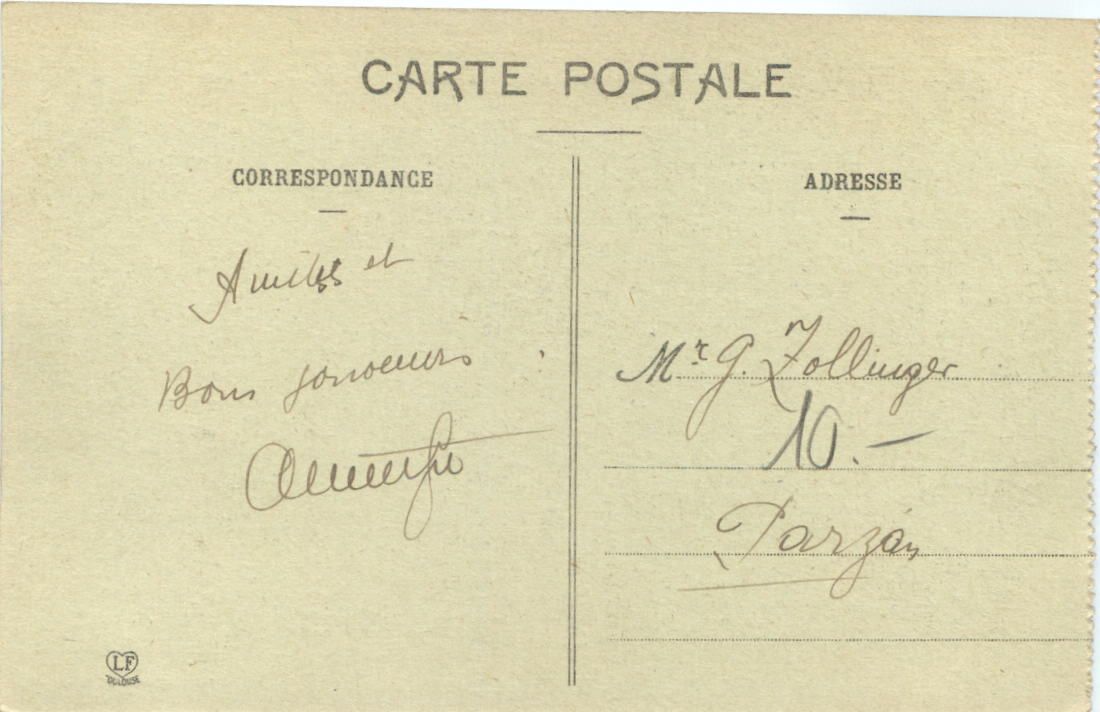 CARTE POSTALE
CORRESPONDANCE
ADRESSE
Amitiés et
Bons
Mr G. Zollinger
10.—
Parzán
LF
TOULOUSE